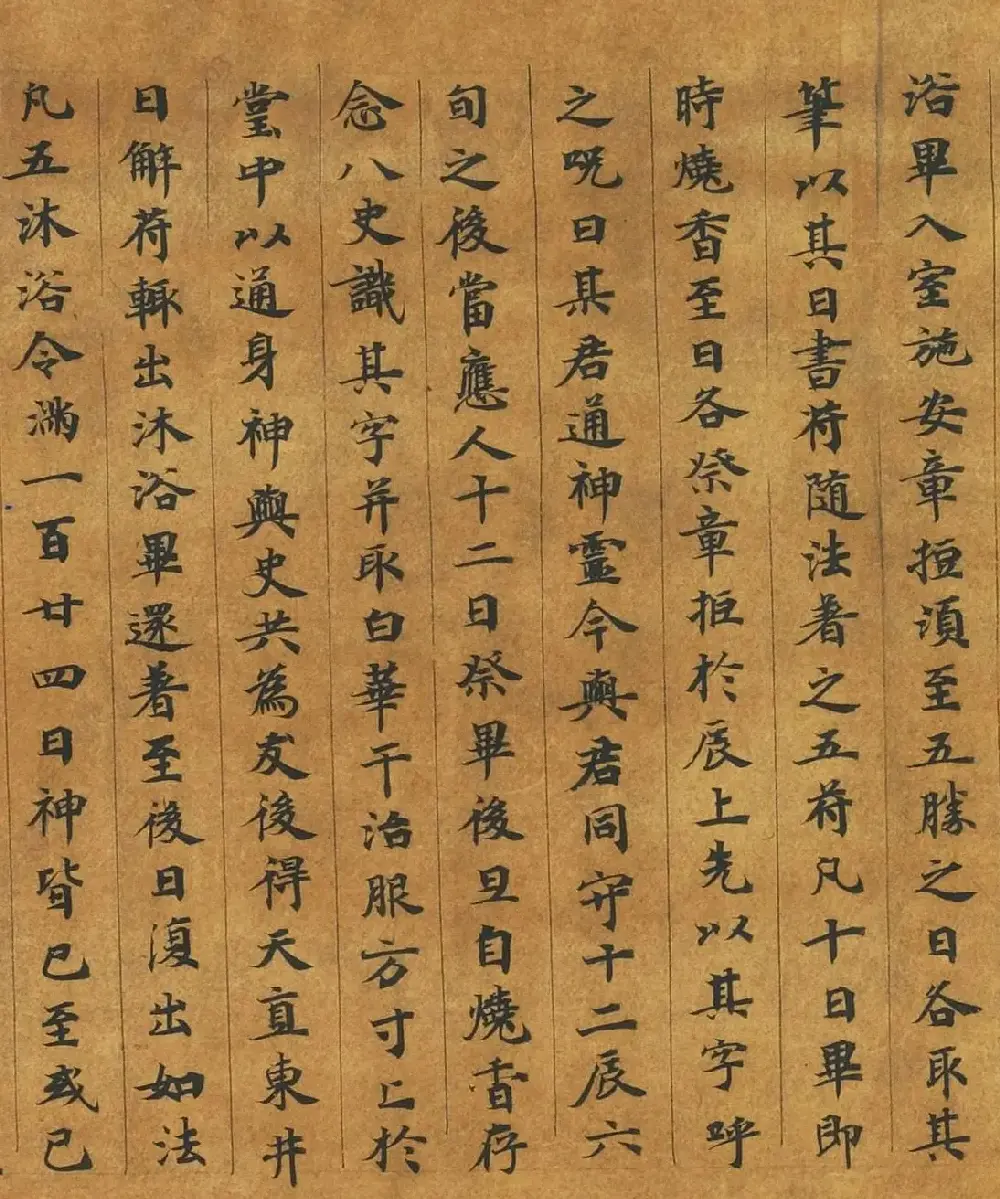 浴畢入室施安章拒須至五勝之日各取其
筆以其日書苻随法著之五苻凡十日畢即
時燒香至日各祭章拒於辰上先以其字呼
之呪曰某君通神靈今與君同守十二辰六
旬之後當應人十二日祭畢後旦自燒香存
念八史識其字并取白華干治服方寸上於
堂中以通身神與史共為友後得天直東井
日解苻輙出沐浴畢還著至後日復出如法
凡五沐浴令滿一百廿四日神皆已至或已